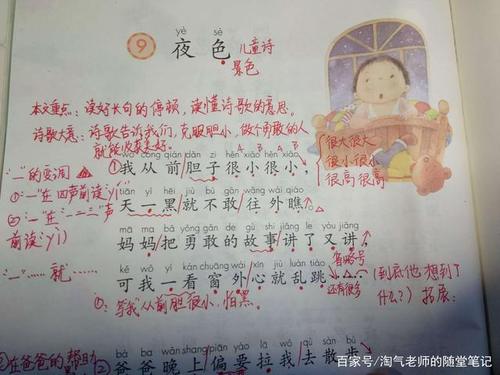 yè sè
9 夜 色 儿童诗
景色
本文重点：读好长句的停顿，读懂诗歌的意思。
诗歌大意：诗歌告诉我们，克服胆小，做个勇敢的人
就能收获美好。
很大很大
很小很小
很高很高
wǒ cóng qián dǎn zi hěn xiǎo hěn xiǎo
①我从前/胆子很小很小，
"一"的变调
①"一"在四声前读yí
tiān yì hēi jiù bù gǎn wǎng wài qiáo
天一黑/就不敢/往外瞧。
②"一"在"一二三"声
前读yì
mā ma bǎ yǒng gǎn de gù shi jiǎng le yòu jiǎng
妈妈/把勇敢的故事/讲了又讲，
"一……就……
kě wǒ yí kàn chuāng wài xīn jiù luàn tiào
可我一看窗外/心就乱跳……
省略号
还有很多
(到底他想到了
什么？) 拓展：
①：等我从前胆很小，怕黑。
在爸爸的帮助
bà ba wǎn shang piān yào lā wǒ qù sàn bù
②爸爸晚上/偏要拉我/去散步
百家号/淘气老师的随堂笔记